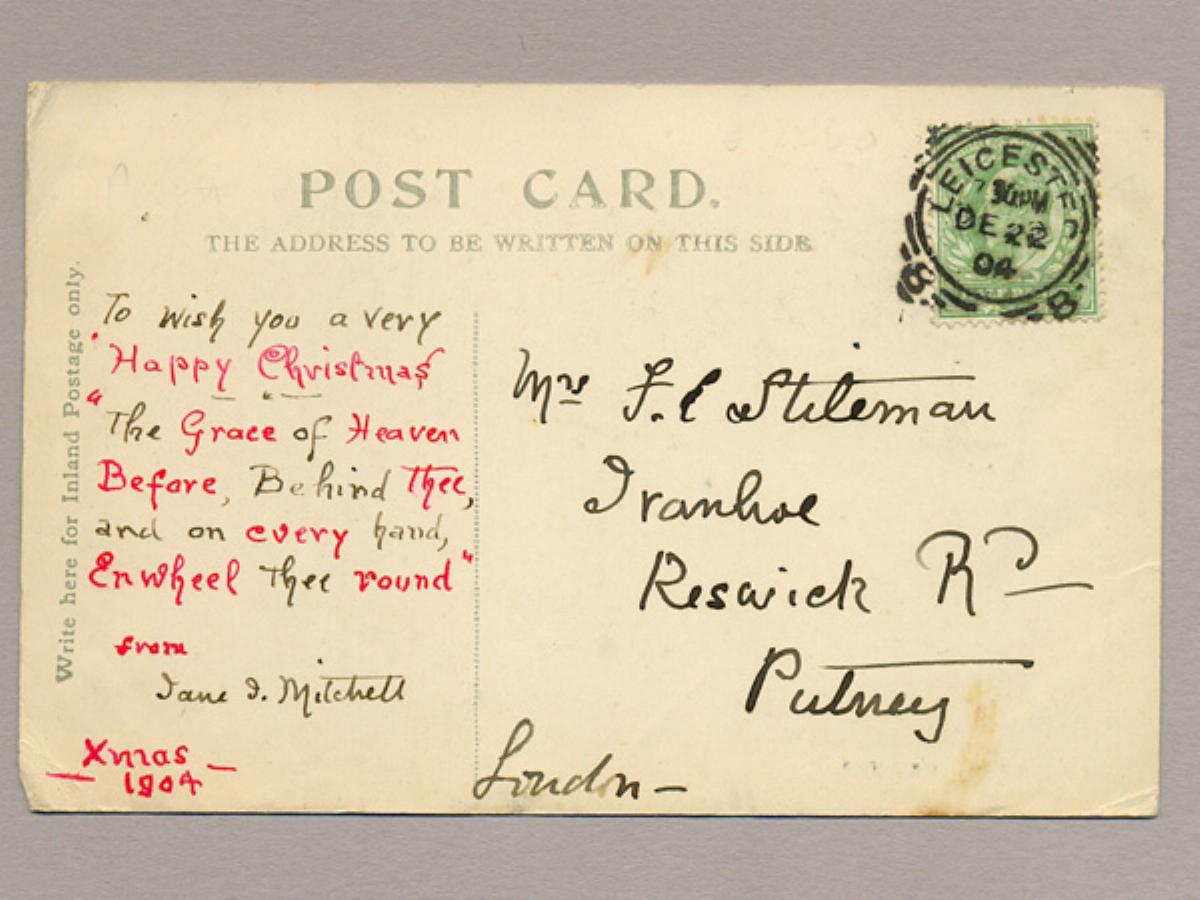 POST CARD.
THE ADDRESS TO BE WRITTEN ON THIS SIDE.
Write here for Inland Postage only.
To wish you a very
"Happy Christmas
"The Grace of Heaven
Before, Behind Thee,
and on every hand,
Enwheel Thee round"
from
Jane I. Mitchell
Xmas
1904
LEICESTER
30PM
DE 22
04
8 8
Mrs F. E Stileman
Ivanhoe
Keswick Rd
Putney
London